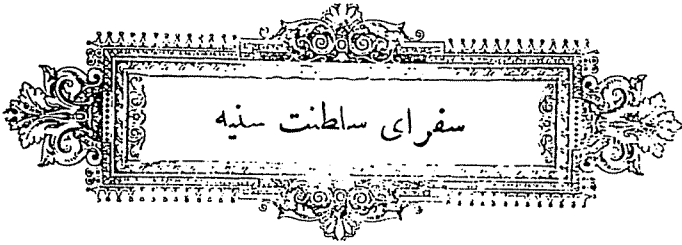 سفرای سلطنت سنیه